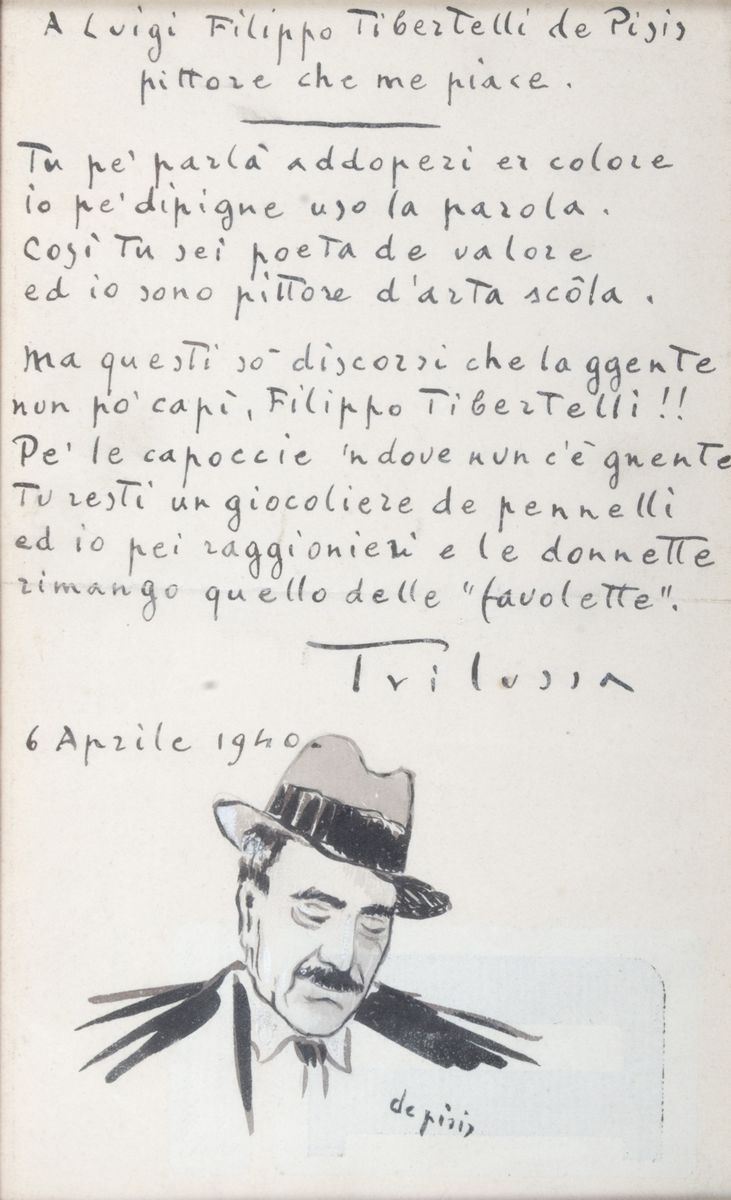 A Luigi Filippo Tibertelli de Pisis
pittore che me piace.
Tu pe' parlà addoperi er colore
io pe' dipigne uso la parola.
Così tu sei poeta de valore
ed io sono pittore d'arta scôla.
Ma questi so' discorsi che la ggente
nun po' capì, Filippo Tibertelli!!
Pe' le capoccie 'ndove nun c'è gnente
Tu resti un giocoliere de pennelli
ed io pei raggionieri e le donnette
rimango quello delle "favolette".
Trilussa
6 Aprile 1940.
de pisis